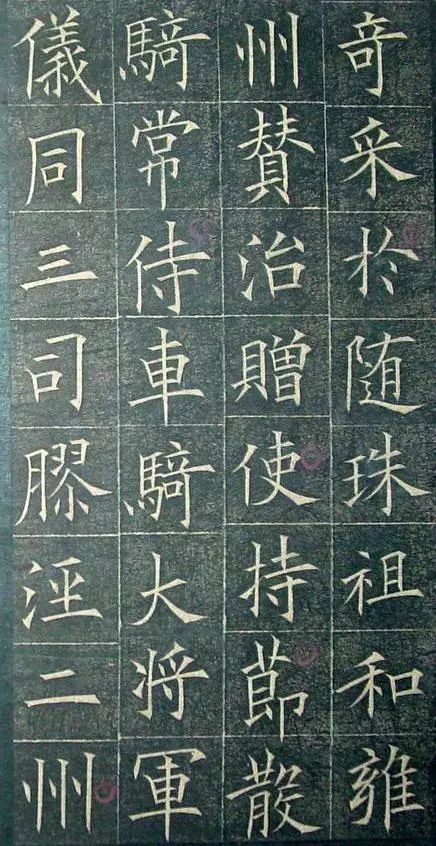 奇采於随珠祖和雍
州賛治贈使持節散
騎常侍車騎大将軍
儀同三司膠涇二州